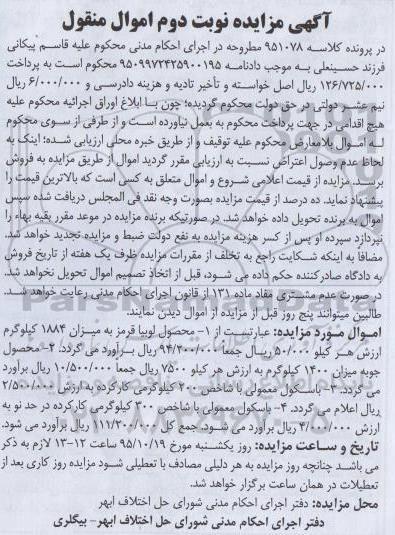 آگهی مزایده نوبت دوم اموال منقول
در پرونده کلاسه ۹۵۱۰۷۸ مطروحه در اجرای احکام مدنی محکوم علیه قاسم پیکانی
فرزند حسینعلی به موجب دادنامه ۹۵۰۹۹۷۲۴۲۵۹۰۰۱۹۵ محکوم است به پرداخت
۱۲۶/۷۲۵/۰۰۰ ریال اصل خواسته و تأخیر تادیه و هزینه دادرسی و ۶/۰۰۰/۰۰۰ ریال
نیم عشر دولتی در حق دولت محکوم گردیده؛ چون با ابلاغ اوراق اجرائیه محکوم علیه
هیچ اقدامی در جهت پرداخت محکوم به بعمل نیاورده است و از طرفی از سوی محکوم
له اموال بلامعارض محکوم علیه توقیف و از طریق خبره محلی ارزیابی شده؛ اینک به
لحاظ عدم وصول اعتراض نسبت به ارزیابی مقرر گردید اموال از طریق مزایده به فروش
برسد. مزایده از قیمت اعلامی شروع و اموال متعلق به کسی است که بالاترین قیمت را
پیشنهاد نماید. ده درصد از قیمت مزایده بصورت وجه نقد فی المجلس دریافت شده سپس
اموال به برنده تحویل داده خواهد شد. در صورتیکه برنده مزایده در موعد مقرر بقیه بهاء را
نپردازد سپرده او پس از کسر هزینه مزایده به نفع دولت ضبط و مزایده تجدید خواهد شد.
مضافا به اینکه شکایت راجع به تخلف از مقررات مزایده ظرف یک هفته از تاریخ فروش
به دادگاه صادرکننده حکم داده می شود، قبل از اتخاذ تصمیم اموال تحویل نخواهد شد.
در صورت عدم مشتری مفاد ماده ۱۳۱ از قانون اجرای احکام مدنی رعایت خواهد شد.
طالبین میتوانند پنج روز قبل از مزایده از اموال دیدن نمایند.
اموال مورد مزایده: عبارتست از ۱- محصول لوبیا قرمز به میزان ۱۸۸۴ کیلوگرم
ارزش هر کیلو ۵۰/۰۰۰ ریال جمعا ۹۴/۲۰۰/۰۰۰ ریال برآورد می گردد. ۲- محصول
جوبه میزان ۱۴۰۰ کیلوگرم به ارزش هر کیلو ۷۵۰۰ ریال جمعا ۱۰/۵۰۰/۰۰۰ ریال برآورد
می گردد. ۳- باسکول معمولی با شاخص ۲۰۰ کیلوگرمی کارکرده به ارزش ۲/۵۰۰/۰۰۰
ریال اعلام می گردد. ۴- باسکول معمولی با شاخص ۳۰۰ کیلوگرمی کارکرده در حد نو به
ارزش ۴/۰۰۰/۰۰۰ ریال برآورد می شود. جمع کل ۱۱۱/۲۰۰/۰۰۰ ریال برآورد می شود.
تاریخ و ساعت مزایده: روز یکشنبه مورخ ۹۵/۱۰/۱۹ ساعت ۱۲-۱۳ لازم به ذکر
می باشد چنانچه روز مزایده به هر دلیلی مصادف با تعطیلی شود مزایده روز کاری بعد از
تعطیلات در همان ساعت برگزار خواهد شد.
محل مزایده: دفتر اجرای احکام مدنی شورای حل اختلاف ابهر
دفتر اجرای احکام مدنی شورای حل اختلاف ابهر- بیگلری